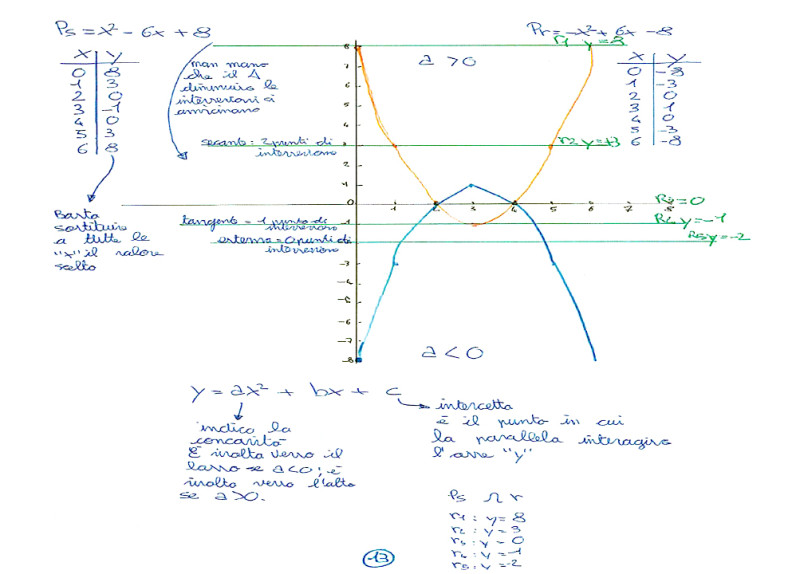 Ps = x² - 6x + 8
x y
0 8
1 3
2 0
3 -1
4 0
5 3
6 8
Basta
sostituire
a tutte le
"x" il valore
scelto
man mano
che il Δ
diminuisce le
intersezioni si
avvicinano
secante = 2 punti di
intersezione
tangente = 1 punto di
intersezione
esterna = 0 punti di
intersezione
a > 0
a < 0
8
7
6
5
4
3
1
-1
-2
-3
-4
-5
-6
-7
-8
1 2 3 4 5 6 7 8
Pr = -x² + 6x - 8
r1 y = 8
x y
0 -8
1 -3
2 0
3 1
4 0
5 -3
6 -8
r2 y = +3
y = 0
R4 y = -1
R5 y = -2
y = ax² + bx + c
indica la
concavità
È rivolta verso il
basso se a < 0; è
rivolta verso l'alto
se a > 0.
intercetta
è il punto in cui
la parallela
l'asse "y"
Ps ∩ r
r1 : y = 8
r2 : y = 3
r3 : y = 0
r4 : y = -1
r5 : y = -2
13